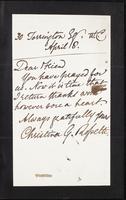 30 Torrington Sq. W.C.
April 18.
Dear Friend
You have prayed for
us. Now it is time that
I return thanks with
however sore a heart.
Always gratefully yours
Christina G. Rossetti